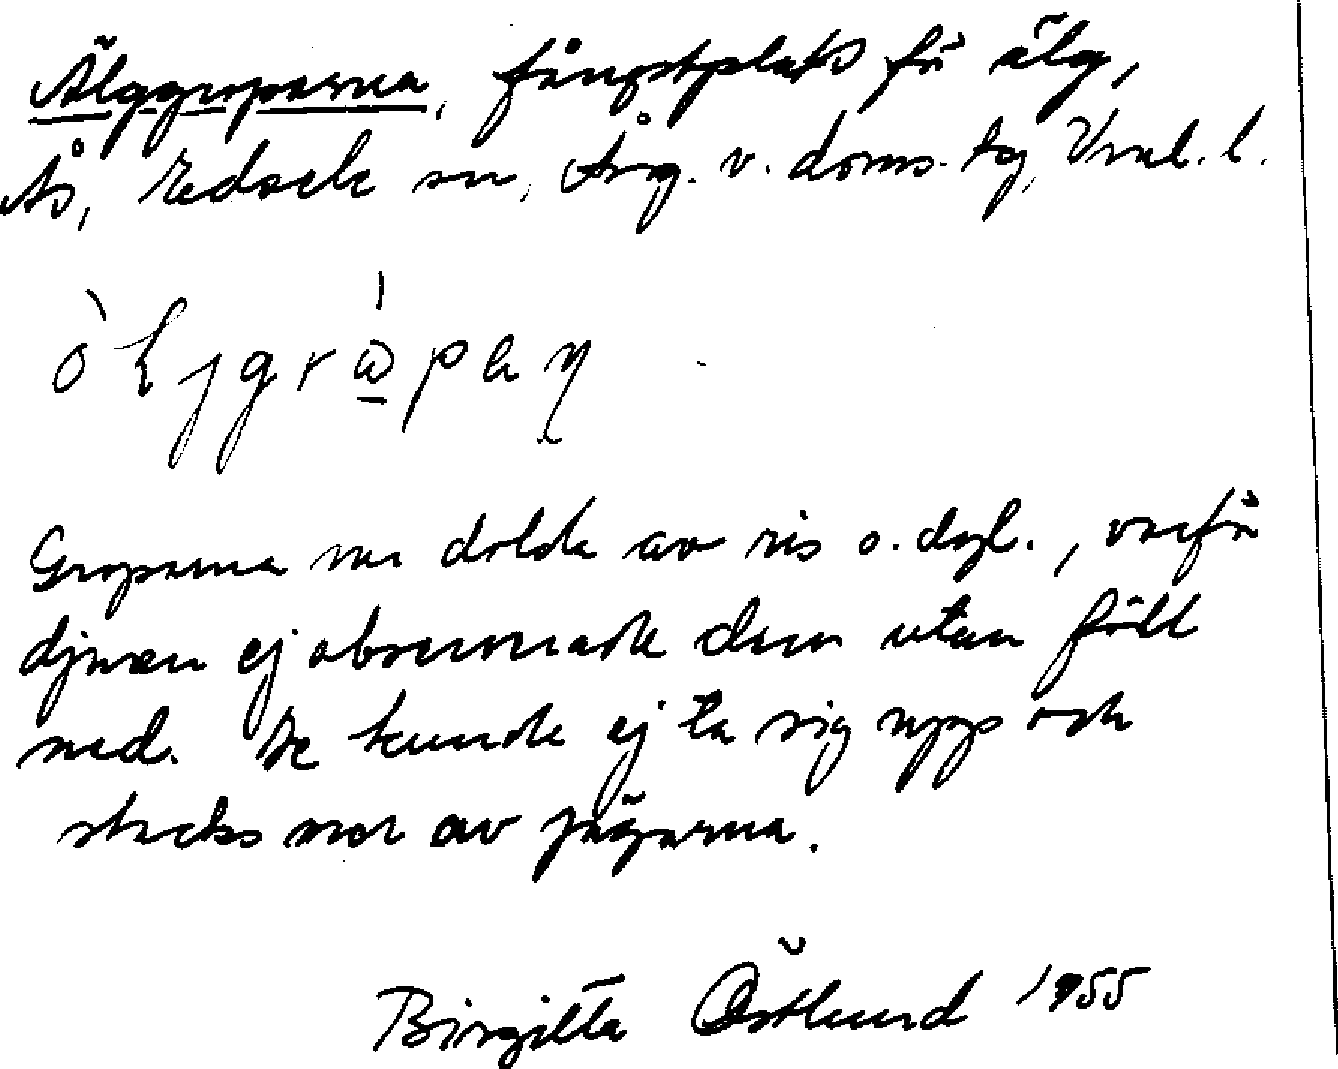 Älggroparna, fångstplats för älg,
Ås, Redsele sn, Ång. v. doms. tg, Vnl. l.
Groparna var dolda av ris o. dyl., varför
djuren ej observerade dem utan föll
ned. De kunde ej ta sig upp och
stacks ner av jägarna.
Birgitta Östlund 1955